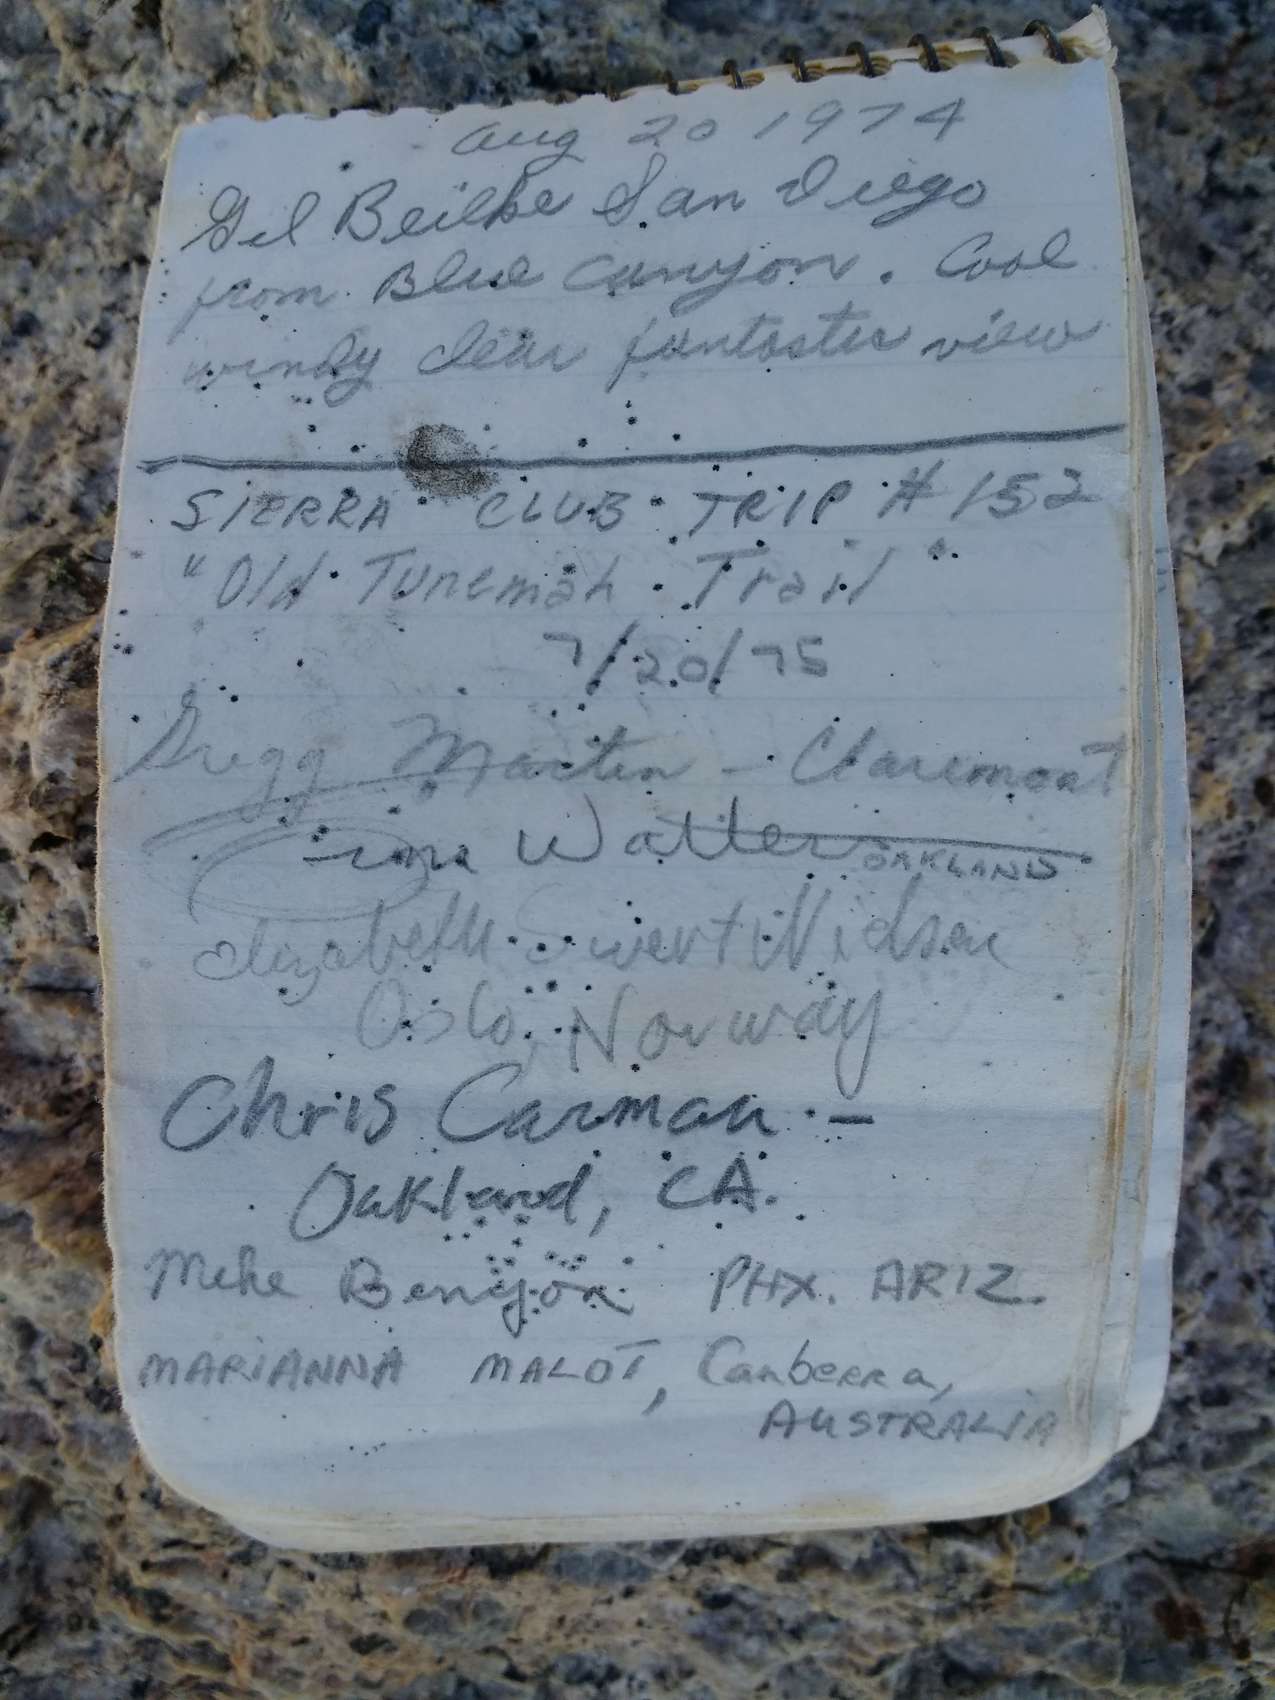 Aug 20 1974
Gil Beilke San Diego
from Blue Canyon. Cool
windy clear fantastic view
SIERRA CLUB TRIP # 152
"Old Tunemah Trail"
7/20/75
Gregg Martin - Claremont
Walter OAKLAND
Elizabeth
Oslo, Norway
Chris Carman -
Oakland, CA.
Mike Benyon PHX. ARIZ.
MARIANNA MALOT, Canberra,
AUSTRALIA